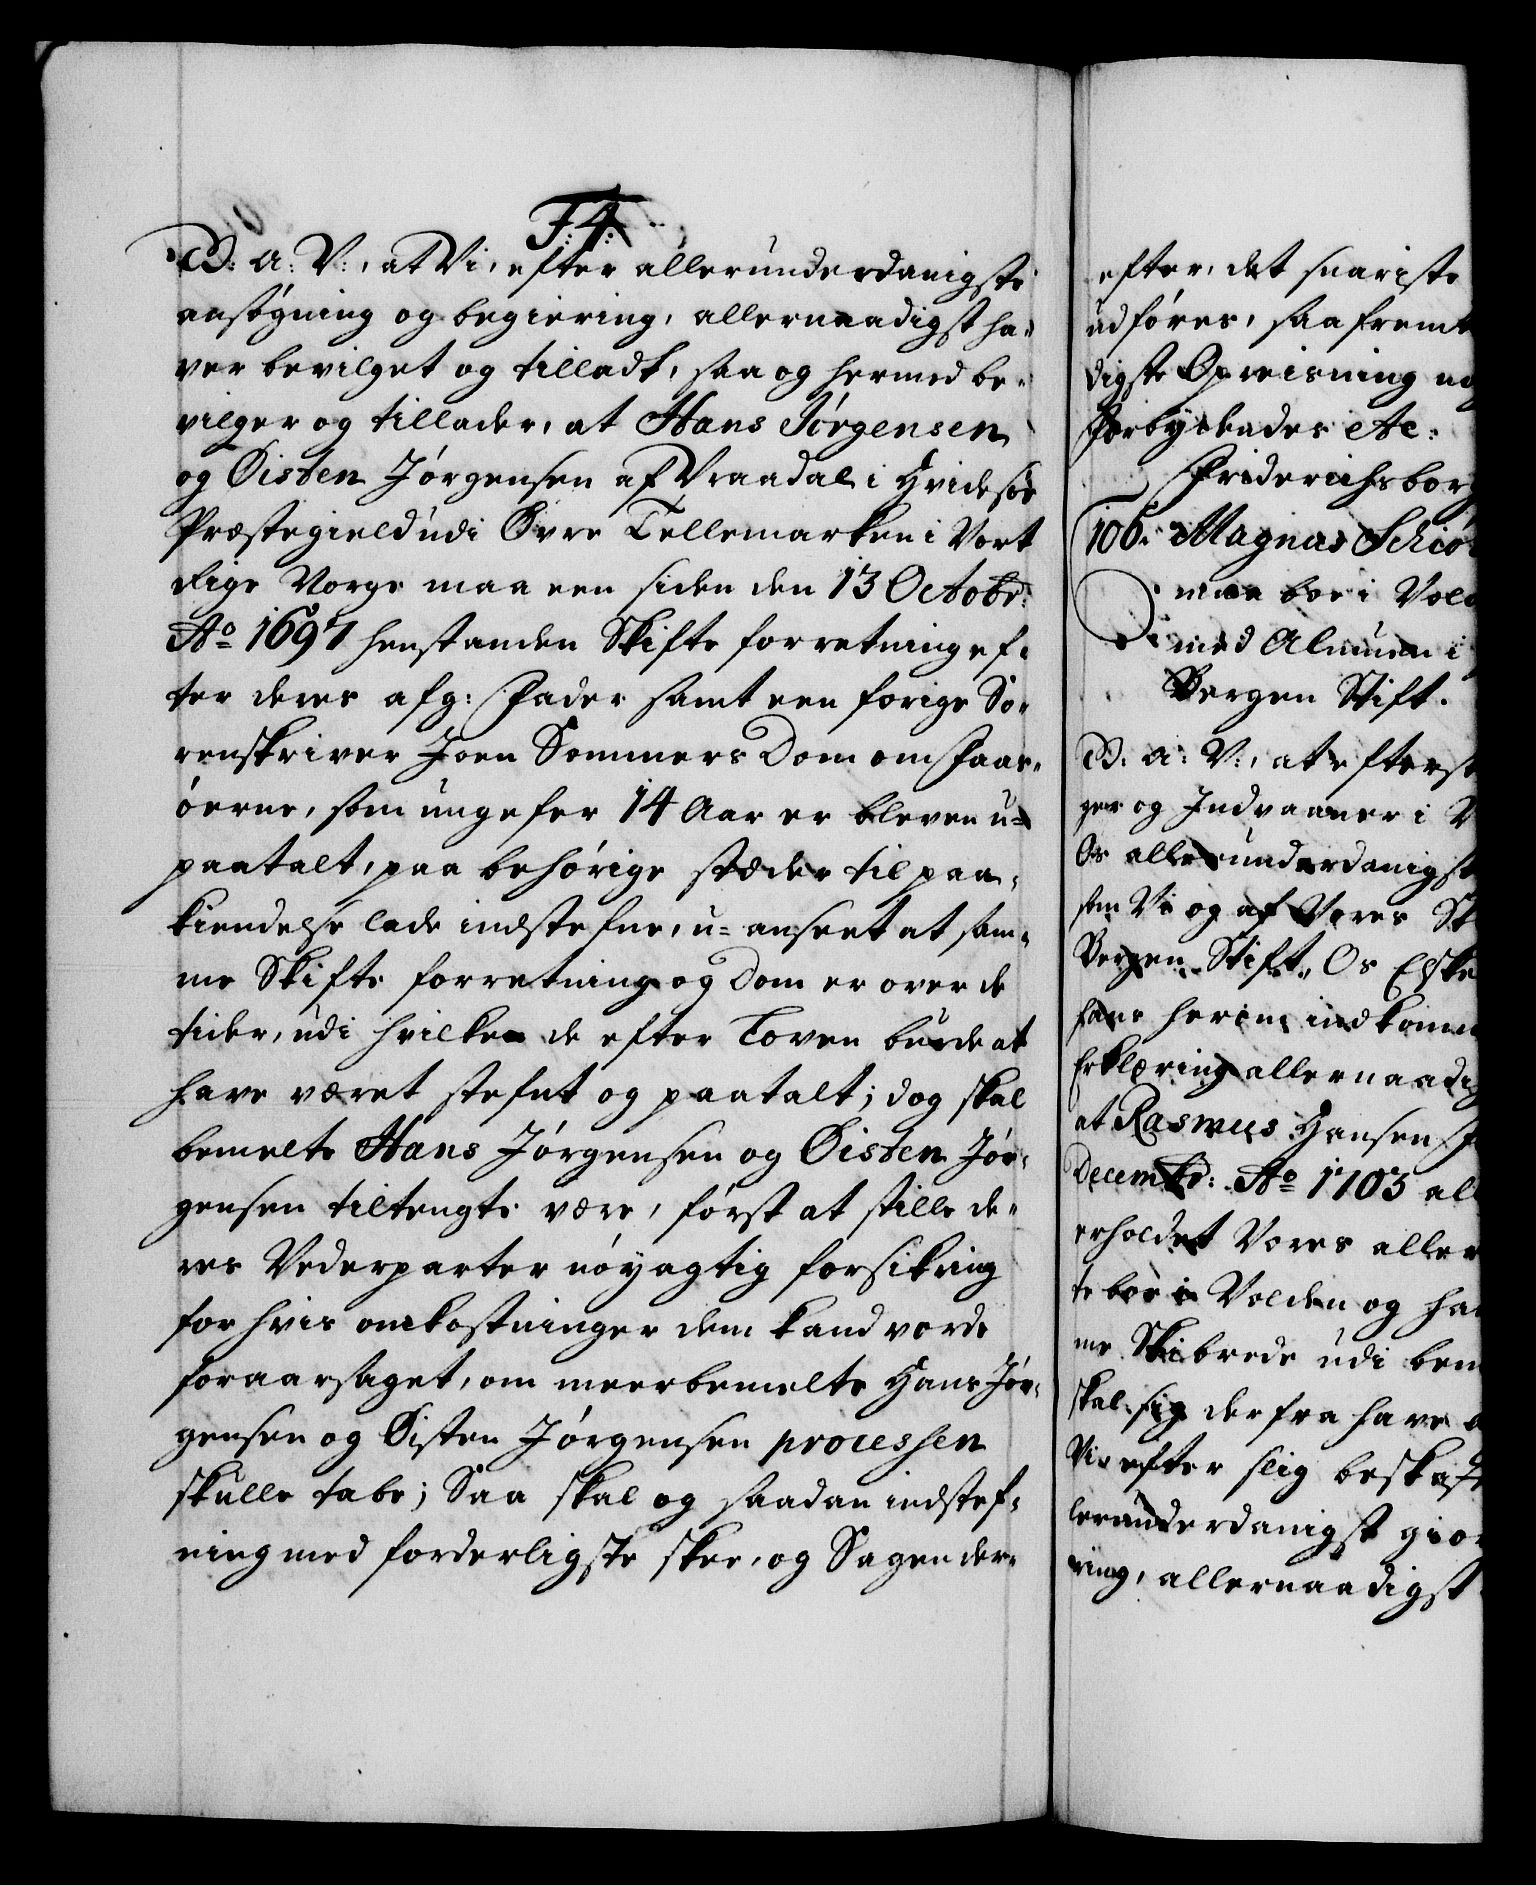 F:4:
W: A: V:, at Vi, efter allerunderdanigste
ansøgning og begiering, allernaadigst ha-
ver bevilget og tilladt, saa og hermed be-
vilger og tillader, at Hans Jørgensen
og Øisten Jørgensen af Vraadal i Hvidesøe
Præstegield udi Øvre Tellemarken i Vort
Rige Norge maa een siden den 13 Octobr:
Ao 1697 henstanden Skifte forretning ef-
ter deres afg: Fader samt een forige So-
renskriver Joen Sommers Dom om
øerne, som ungefer 14 Aar er bleven u-
paatalt, paa behørige stæder til paa-
kiendelse lade indstefne, u-anseet at sam-
me Skifte forretning og Dom er over de
tider, udi hvilken de efter Loven burde at
have været stefnt og paatalt; dog skal
bemelte Hans Jørgensen og Øisten Jør-
gensen tiltengte være, først at stille de-
res Vederparter nøyagtig forsikring
for hvis omkostninger dem kand vorde
foraarsaget, om meerbemelte Hans Jør-
gensen og Øisten Jørgensen processen
skulle tabe; Saa skal og saadan indstef-
ning med forderligste skee, og Sagen der-
efter, det snariste
udføres, saafremt
digste Opreisning
Forbydendes etc:
Friderichsborg
106. Magnus Schiø
maa boe i Vold
med Almuen i
Bergen Stift.
W: A: V:, at efterso
ger og Indvaaner i
Os allerunderdanigst
som Vi og af Vores
Bergen Stift, Os Elske
have herom indkomm
Erklæring allernaadig
at Rasmus Hansen
Decembr: Ao 1703 all
erholdet Vores aller
te boe i Volden og ha
me Skibrede udi bem
skal sig derfra have
Vi efter slig beskaf
lerunderdanigst gior
ring, allernaadigst